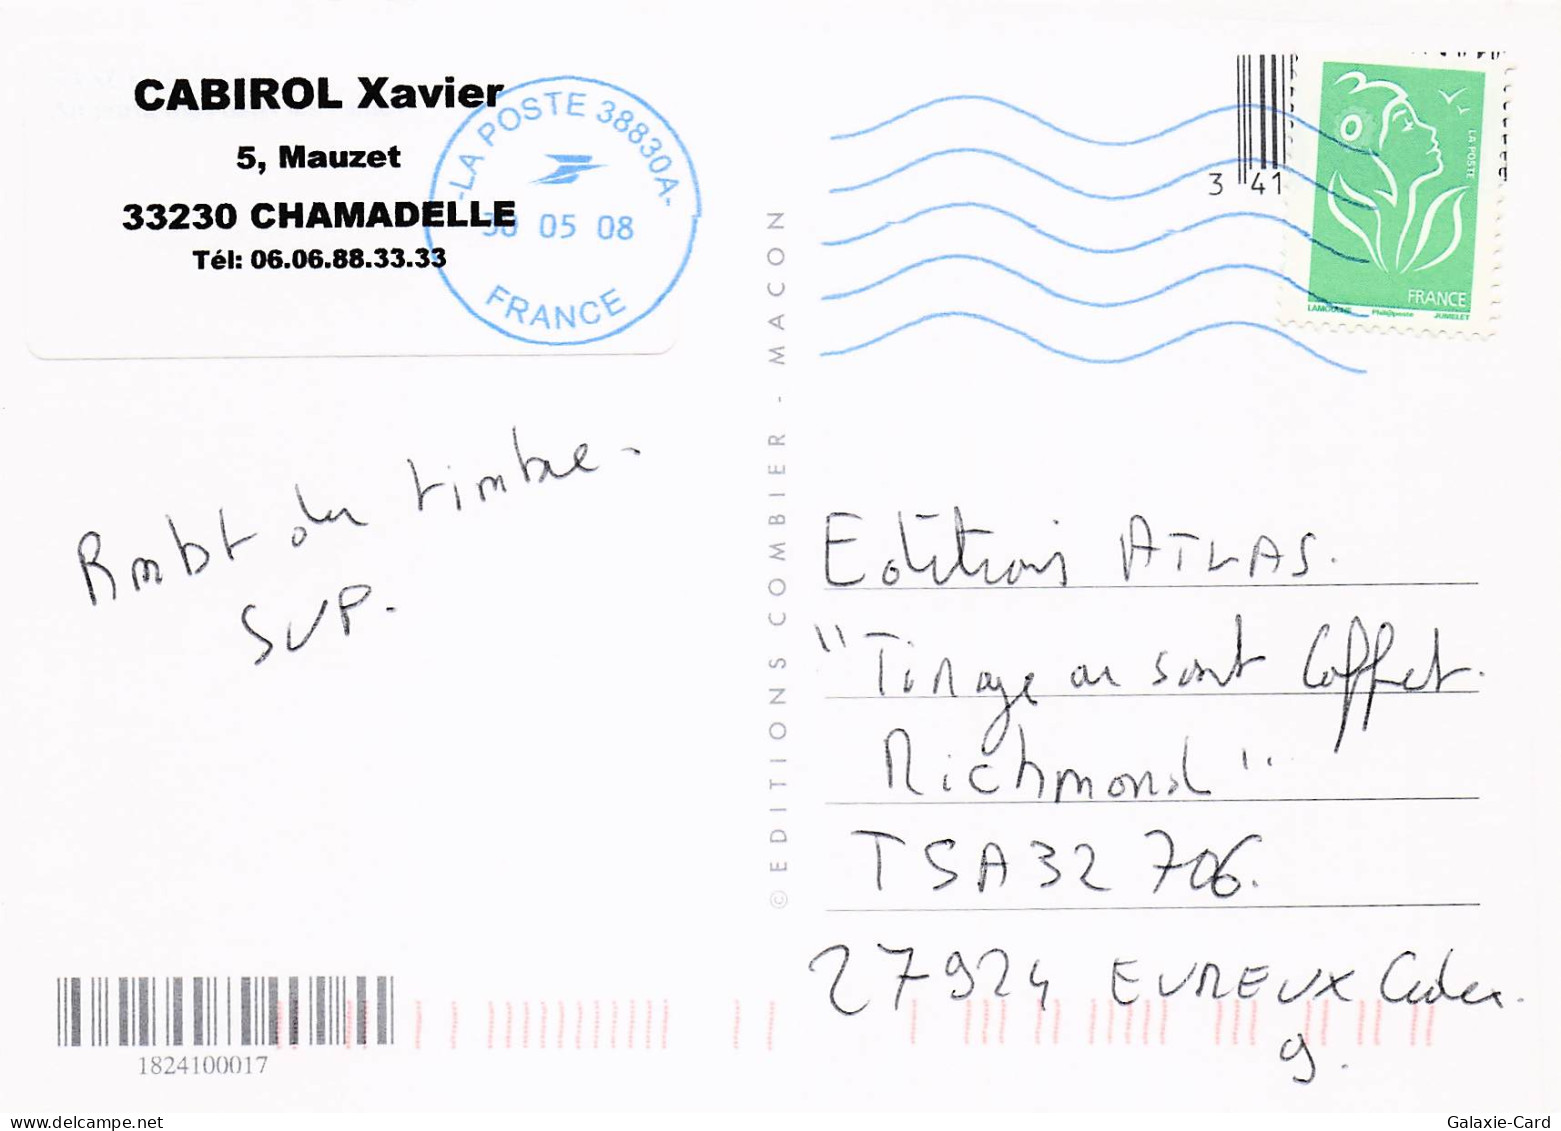 CABIROL Xavier
5, Mauzet
33230 CHAMADELLE
Tél: 06.06.88.33.33
-LA POSTE 38830A-
30 05 08
FRANCE
3 41
LA POSTE
FRANCE
LAMOUCHE Phil@poste JUMELET
Rmbt du timbre.
SVP.
© EDITIONS COMBIER - MACON
Editions ATLAS.
"Tirage au sort Coffret.
Richmond"
TSA32 706.
27924 EVREUX Cedex.
9.
1824100017
delcampe.net
Galaxie-Card